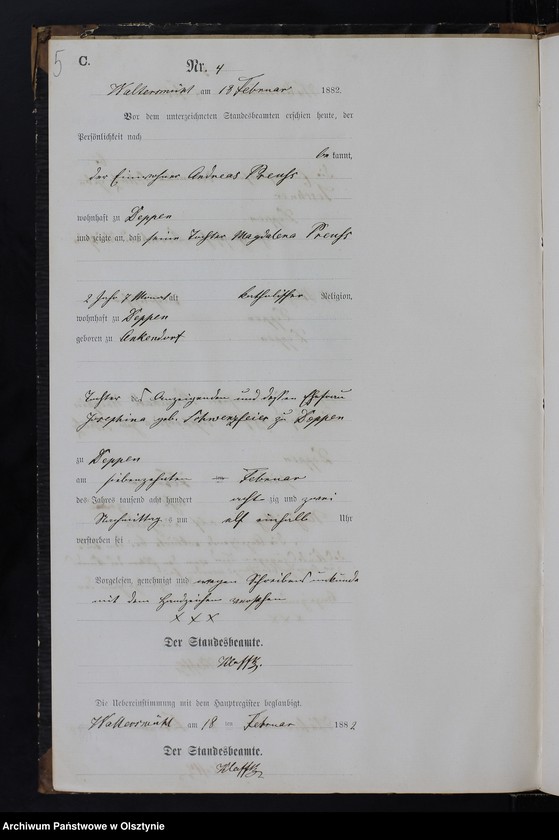 5
C.
Nr. 4
Waltersmühl am 18 Februar 1882.
Vor dem unterzeichneten Standesbeamten erschien heute, der
Persönlichkeit nach
be kannt,
der Einwohner Andreas Preuß
wohnhaft zu Deppen
und zeigte an, daß seine Tochter Magdalena Preuß
2 Jahr 7 Monat alt katholischer Religion,
wohnhaft zu Deppen
geboren zu Ankendorf
Tochter des Anzeigenden und dessen Ehefrau
Josephina geb. Schwenzfeier zu Deppen
zu Deppen
am siebenzehnten Februar
des Jahres tausend acht hundert acht zig und zwei
Nachmittag s um elf einhalb Uhr
verstorben sei
Vorgelesen, genehmigt und wegen Schreibens unkunde
mit dem Handzeichen versehen
x x x
Der Standesbeamte.
Die Uebereinstimmung mit dem Hauptregister beglaubigt.
Waltersmühl am 18 ten Februar 1882
Der Standesbeamte.
Archiwum Państwowe w Olsztynie